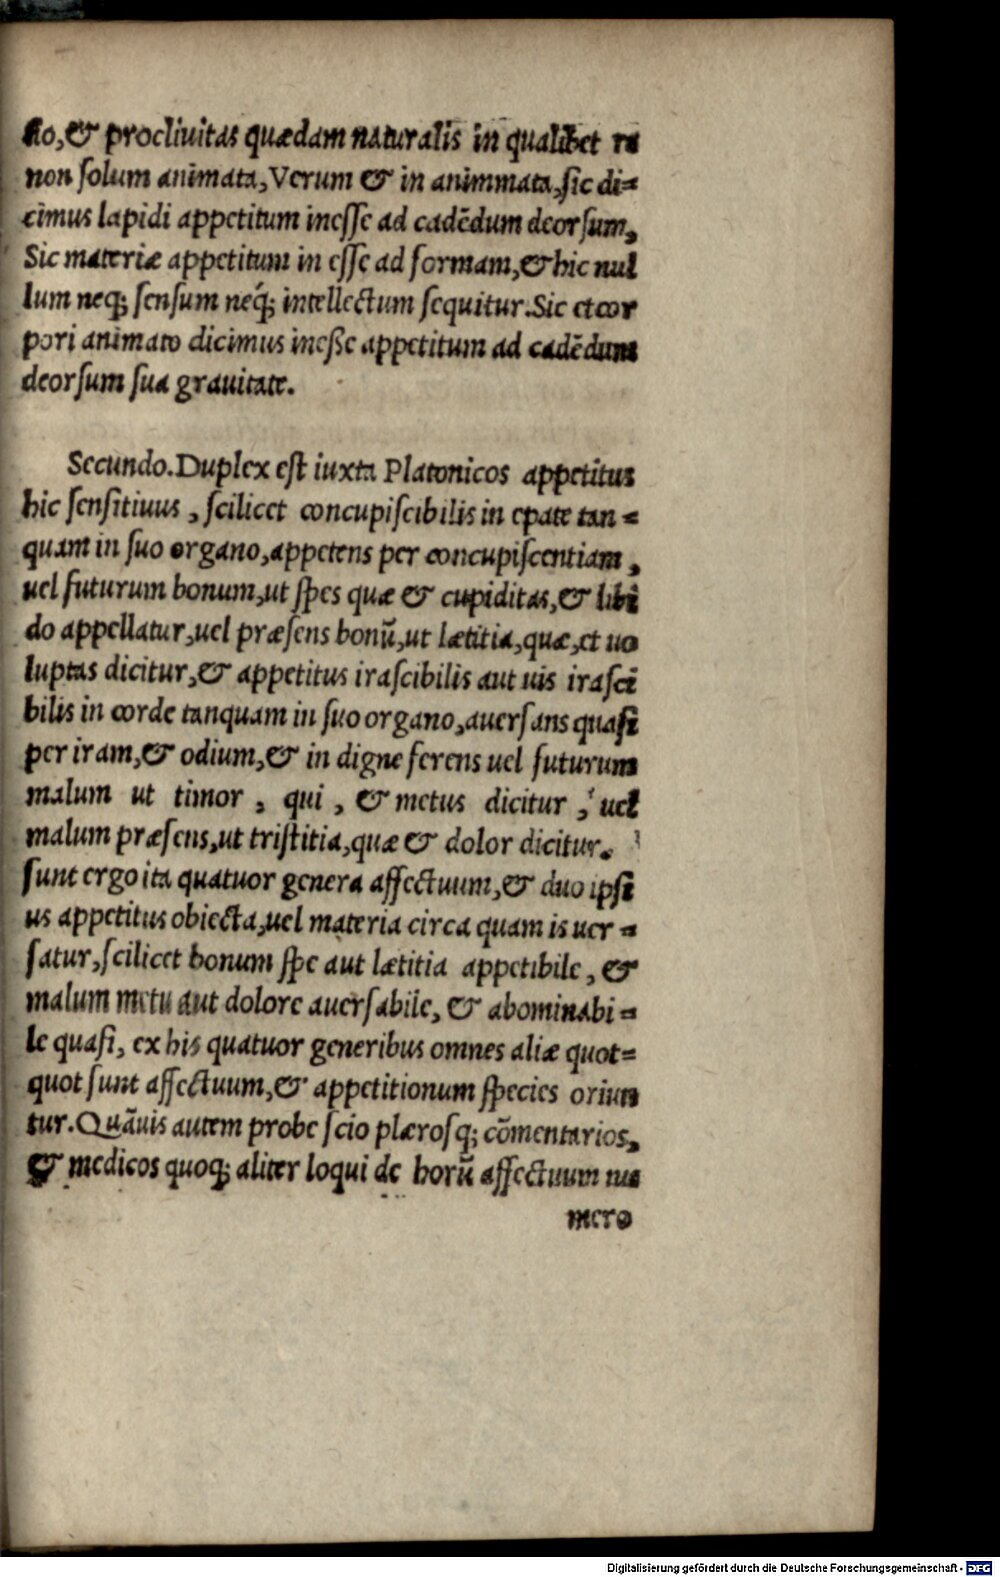 ctio, & procliuitas quædam naturalis in qualibet re
non ſolum animata, Verum & in animmata, ſic di=
cimus lapidi appetitum ineſſe ad cadẽdum deorſum,
Sic materiæ appetitum in eſſe ad formam, & hic nul
lum neq; ſenſum neq́; intellectum ſequitur. Sic et cor
pori animato dicimus ineſse appetitum ad cadẽdum
deorſum ſua grauitate.
Secundo. Duplex eſt iuxta Platonicos appetitus
hic ſenſitiuus, ſcilicet concupiſcibilis in epate tan=
quam in ſuo organo, appetens per concupiſcentiam,
uel futurum bonum, ut ſpes quæ & cupiditas, & libi
do appellatur, uel præſens bonũ, ut lætitia, quæ, et uo
luptas dicitur, & appetitus iraſcibilis aut uis iraſci
bilis in corde tanquam in ſuo organo, auerſans quaſi
per iram, & odium, & in digne ferens uel futurum
malum ut timor, qui, & metus dicitur, uel
malum præſens, ut triſtitia, quæ & dolor dicitur.
ſunt ergo ita quatuor genera affectuum, & duo ipſi
us appetitus obiecta, uel materia circa quam is uer=
ſatur, ſcilicet bonum ſpe aut lætitia appetibile, &
malum metu aut dolore auerſabile, & abominabi=
le quaſi, ex his quatuor generibus omnes aliæ quot=
quot ſunt affectuum, & appetitionum ſpecies oriun
tur. Quãuis autem probe ſcio plæroſq; cõmentarios,
& medicos quoq; aliter loqui de horũ affectuum nu
mero
Digitalisierung gefördert durch die Deutsche Forschungsgemeinschaft - DFG